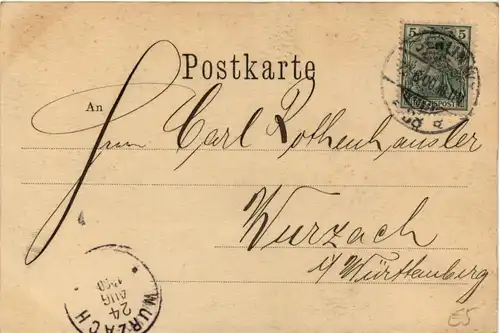 5 5
BERLIN
Postkarte
REICHSPOST
An
Herrn Carl Rothenhäusler
Wurzach
i/ Württemberg
WURZACH
24
AUG
1900
E5